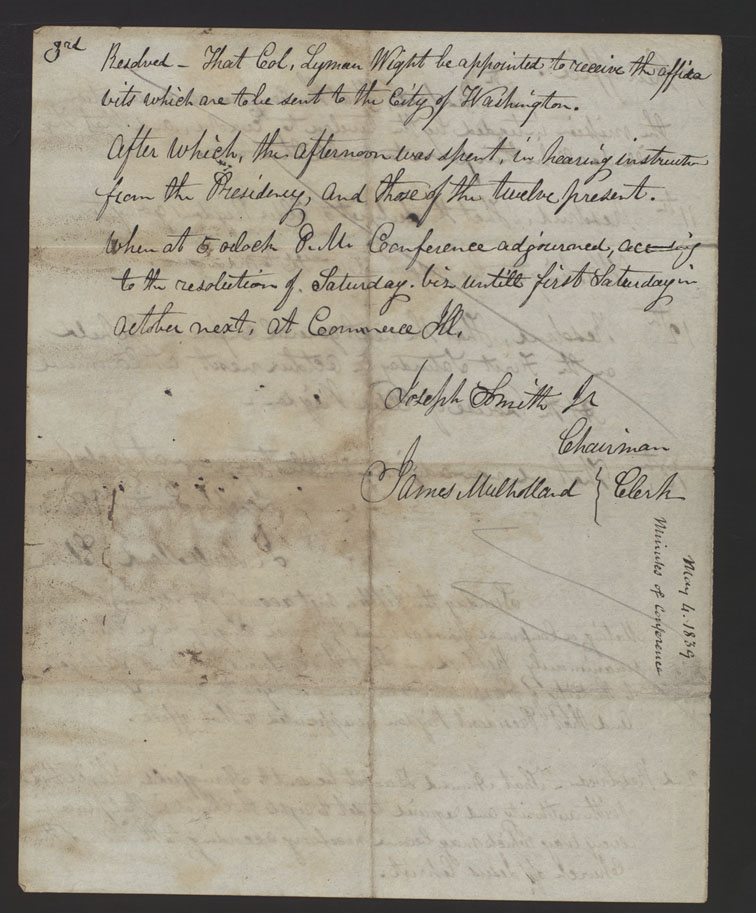 3rd Resolved – That Col, Lyman Wight be appointed to receive the affida
vits which are to be sent to the City of Washington.
After which, the afternoon was spent, in hearing instruction
from the Presidency, and those of the twelve present.
When at 5, oclock P.M. Conference adjourned, according
to the resolution of Saturday. viz untill first Saturday in
october next, at Commerce Ill,
Joseph Smith Jr
Chairman
James Mulholland } Clerk
May 4. 1839
Minutes of Conference